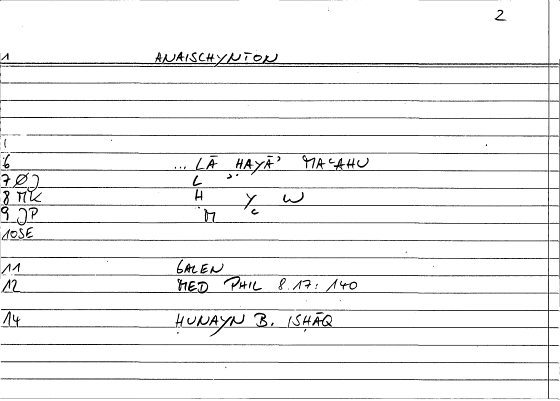 2
1 ANAISCHYNTON
6 ... LĀ ḤAYĀʾ MAʿAHU
7 ØJ L ʾ
8 MK H Y W
9 JP M ʿ
10SE
11 GALEN
12 MED PHIL 8.17: 140
14 ḤUNAYN B. ISḤĀQ